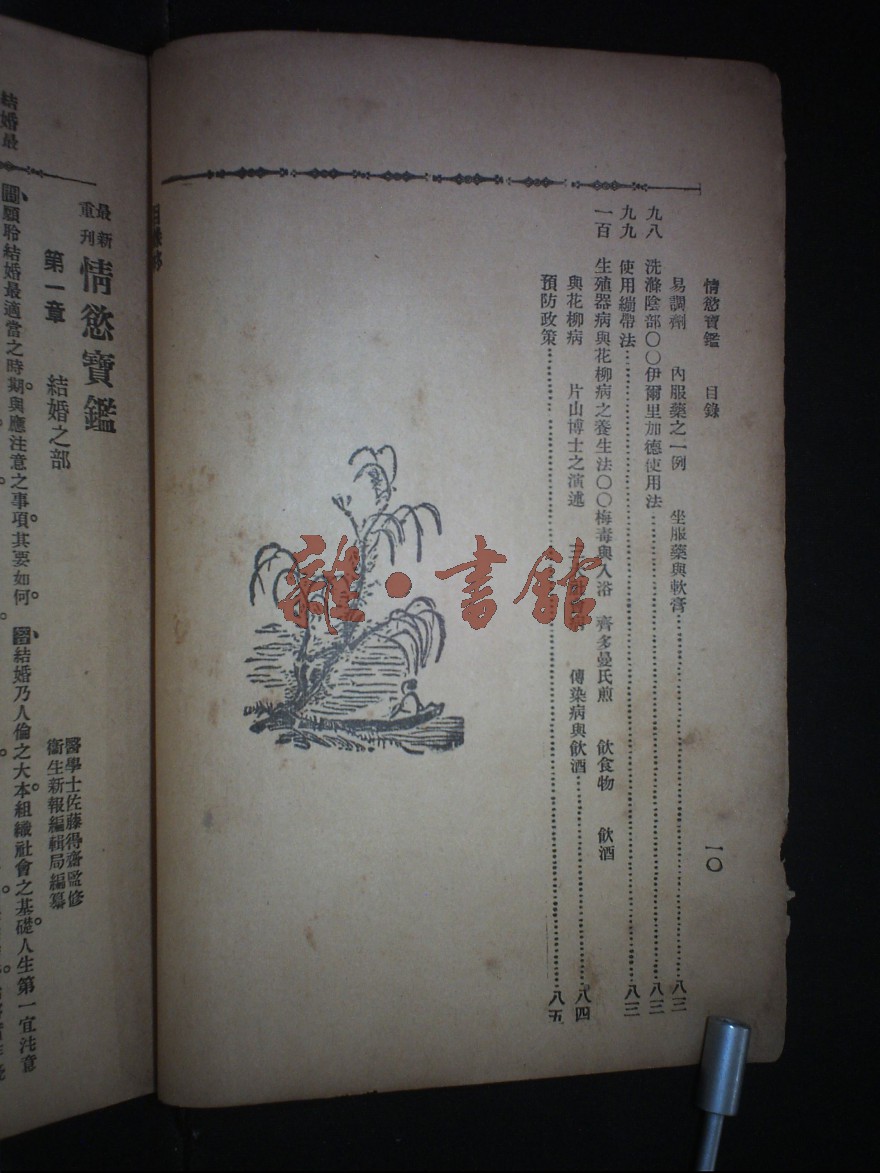 情慾寶鑑　目錄　一〇
易調劑　內服藥之一例　坐服藥與軟膏……八三
九八　洗滌陰部〇〇伊爾里加德使用法……八三
九九　使用繃帶法……八三
一百　生殖器病與花柳病之養生法〇〇梅毒與入浴　齊多曼氏煎　飲食物　飲酒
與花柳病　片山博士之演述　傳染病與飲酒……八四
預防政策……八五
雜·書館
最新
重刊
情慾寶鑑
醫學士佐藤得齋監修
衞生新報編輯局編纂
第一章　結婚之部
願聆結婚最適當之時期與應注意之事項。其要如何。
結婚乃人倫之大本組織社會之基礎。人生第一宜注意
結婚最